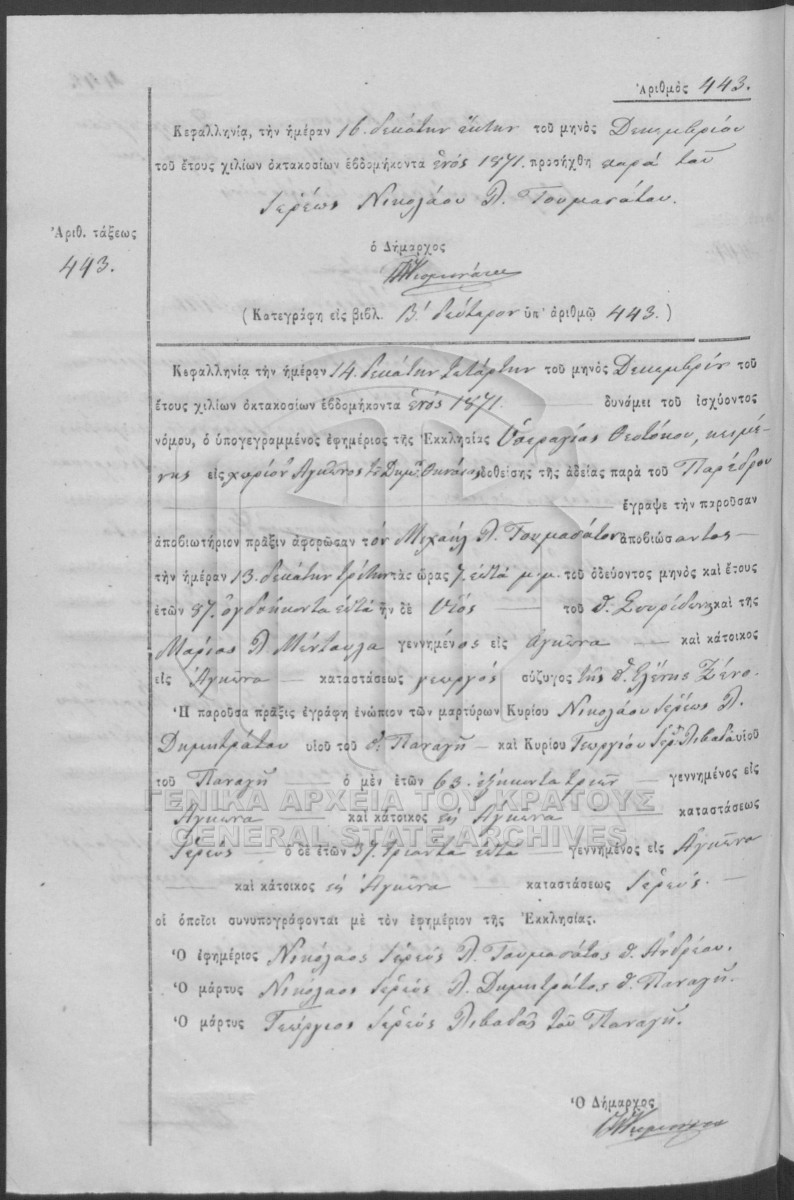 Ἀριθμὸς 443.
Κεφαλληνίᾳ, τὴν ἡμέραν 16 δεκάτην ἕκτην τοῦ μηνὸς Δεκεμβρίου
τοῦ ἔτους χιλίων ὀκτακοσίων ἑβδομήκοντα ἑνός 1871. προσήχθη παρὰ τοῦ
Ἱερέως Νικολάου Λ. Τουμασάτου.
Ἀριθ. τάξεως
443.
ὁ Δήμαρχος
(Κατεγράφη εἰς βιβλ. Β΄ δεύτερον ὑπ' ἀριθμῷ 443.)
Κεφαλληνίᾳ τὴν ἡμέραν 14 δεκάτην τετάρτην τοῦ μηνὸς Δεκεμβρίου τοῦ
ἔτους χιλίων ὀκτακοσίων ἑβδομήκοντα ἑνός 1871. δυνάμει τοῦ ἰσχύοντος
νόμου, ὁ ὑπογεγραμμένος ἐφημέριος τῆς Ἐκκλησίας Ὑπεραγίας Θεοτόκου, κειμέ-
νης εἰς χωρίον Ἀγκῶνος τοῦ Δήμ. Θηναίας δοθείσης τῆς ἀδείας παρὰ τοῦ Παρέδρου
ἔγραψε τὴν παροῦσαν
ἀποβιωτήριον πρᾶξιν ἀφορῶσαν τὸν Μιχαὴλ Λ. Τουμασάτον ἀποβιώσαντος
τὴν ἡμέραν 13 δεκάτην τρίτην τὰς ὥρας 7. ἑπτὰ μ.μ. τοῦ ὁδεύοντος μηνὸς καὶ ἔτους
ἐτῶν 87. ὀγδοήκοντα ἑπτὰ ἦν δὲ Υἱὸς τοῦ π. Σπυρίδωνος καὶ τῆς
Μαρίας Λ. Μένταυλα γεννημένος εἰς Ἀγκῶνα καὶ κάτοικος
εἰς Ἀγκῶνα καταστάσεως γεωργὸς σύζυγος τῆς π. Ἑλένης Ξένο.
Ἡ παροῦσα πρᾶξις ἐγράφη ἐνώπιον τῶν μαρτύρων Κυρίου Νικολάου Ἱερέως Λ.
Δημητράτου υἱοῦ τοῦ π. Παναγῆ καὶ Κυρίου Γεωργίου Ἱερ. Λιβαδᾶ υἱοῦ
τοῦ Παναγῆ ὁ μὲν ἐτῶν 63. ἑξήκοντα τριῶν γεννημένος εἰς
Ἀγκῶνα καὶ κάτοικος εἰς Ἀγκῶνα καταστάσεως
Ἱερεὺς ὁ δὲ ἐτῶν 37. τριάντα ἑπτὰ γεννημένος εἰς Ἀγκῶνα
καὶ κάτοικος εἰς Ἀγκῶνα καταστάσεως Ἱερεύς.
οἱ ὁποῖοι συνυπογράφονται μὲ τὸν ἐφημέριον τῆς Ἐκκλησίας.
Ὁ ἐφημέριος Νικόλαος Ἱερεὺς Λ. Τουμασάτος π. Ἀνδρέου.
Ὁ μάρτυς Νικόλαος Ἱερεὺς Λ. Δημητράτος π. Παναγῆ.
Ὁ μάρτυς Γεώργιος Ἱερεὺς Λιβαδᾶς τοῦ Παναγῆ.
Ὁ Δήμαρχος
ΓΕΝΙΚΑ ΑΡΧΕΙΑ ΤΟΥ ΚΡΑΤΟΥΣ
GENERAL STATE ARCHIVES